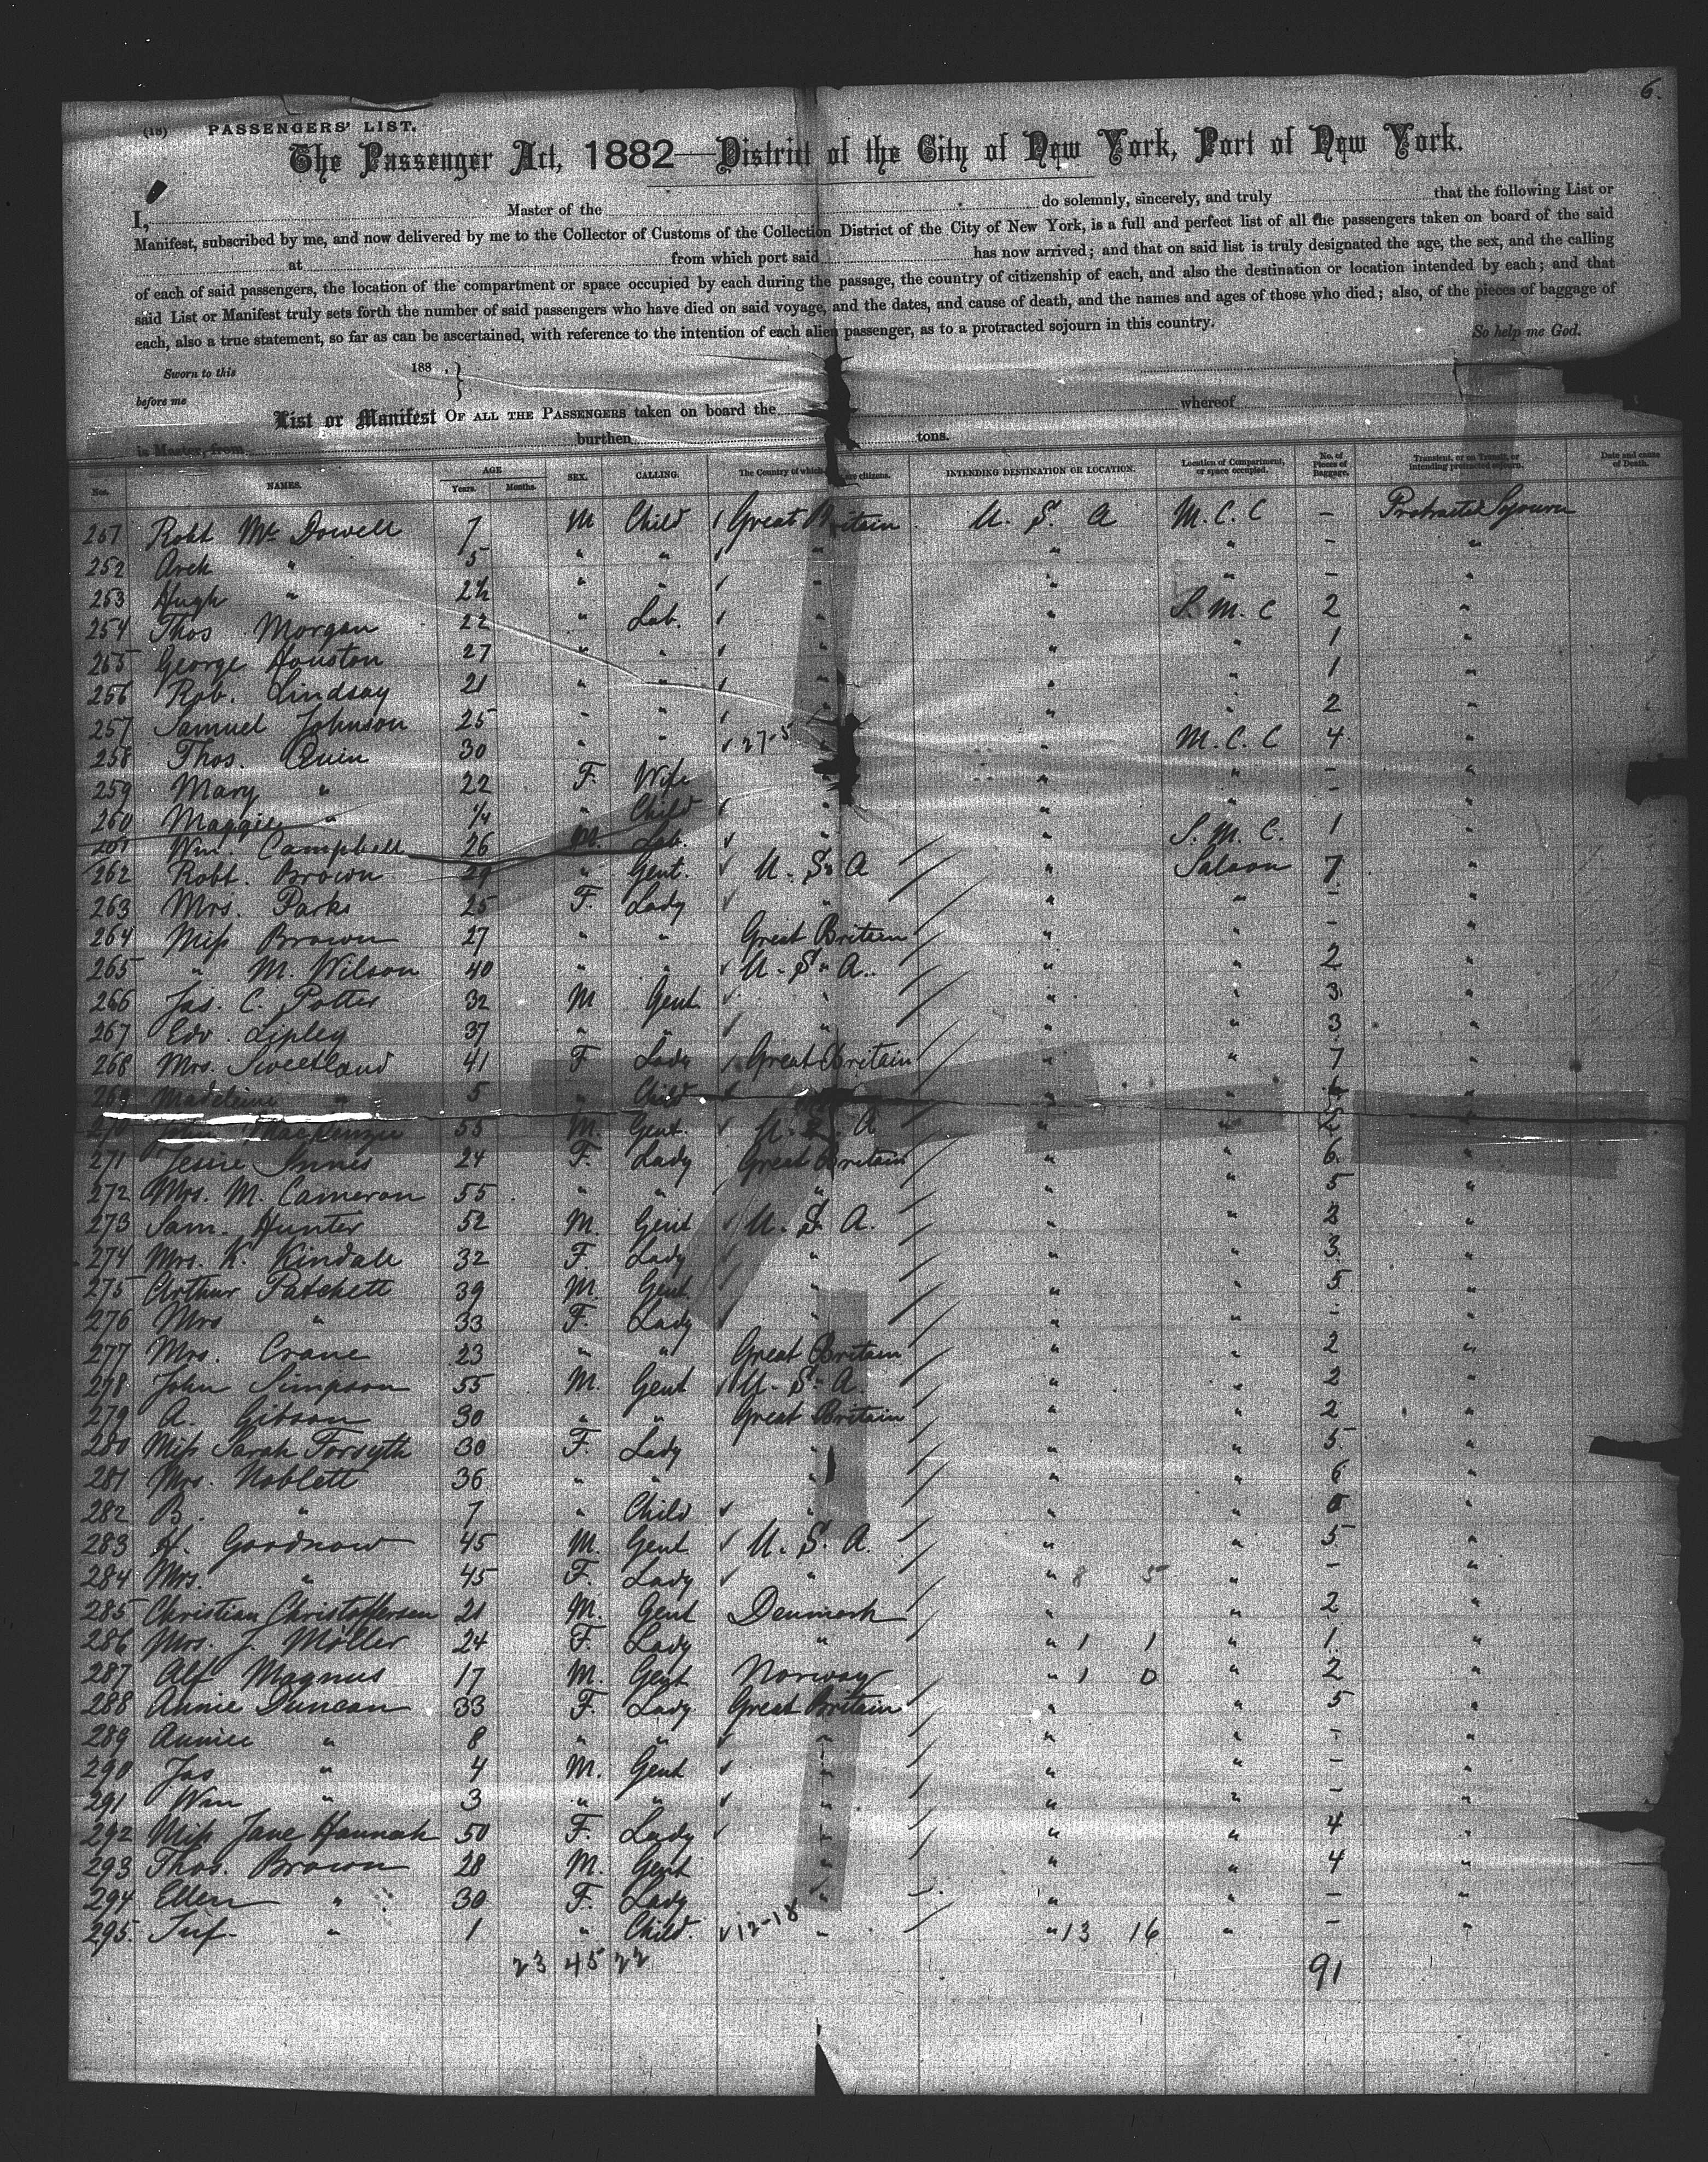 6.
(18) PASSENGERS' LIST.
The Passenger Act, 1882—District of the City of New York, Port of New York.
I, Master of the do solemnly, sincerely, and truly that the following List or
Manifest, subscribed by me, and now delivered by me to the Collector of Customs of the Collection District of the City of New York, is a full and perfect list of all the passengers taken on board of the said
at from which port said has now arrived; and that on said list is truly designated the age, the sex, and the calling
of each of said passengers, the location of the compartment or space occupied by each during the passage, the country of citizenship of each, and also the destination or location intended by each; and that
said List or Manifest truly sets forth the number of said passengers who have died on said voyage, and the dates, and cause of death, and the names and ages of those who died; also, of the pieces of baggage of
each, also a true statement, so far as can be ascertained, with reference to the intention of each alien passenger, as to a protracted sojourn in this country. So help me God.
Sworn to this 188 , }
before me
List or Manifest OF ALL THE PASSENGERS taken on board the whereof
is Master, from burthen tons.
Nos. NAMES. AGE Years. Months. SEX. CALLING. The Country of which are citizens. INTENDING DESTINATION OR LOCATION. Location of Compartment, or space occupied. No. of Pieces of Baggage. Transient, or in Transit, or intending protracted sojourn. Date and cause of Death.
Robt McDowell 7 M Child Great Britain U. S. A M. C. C - Protracted Sojourn
252 Arch " 5 " " " " " - "
253 Hugh " 2½ " " " " " - "
254 Thos Morgan 22 " Lab. " " S. M. C 2 "
255 George Houston 27 " " " " " 1 "
256 Rob. Lindsay 21 " " " " " 1 "
257 Samuel Johnson 25 " " " " " 2 "
258 Thos. Quin 30 " " 27-5 " " M. C. C 4 "
259 Mary " 22 F. Wife " " " - "
260 Maggie " ¼ " Child " " " - "
261 Wm. Campbell 26 M. Lab. " " S. M. C. 1 "
262 Robt. Brown 29 " Gent. U. S. A " Saloon 7 "
263 Mrs. Parks 25 F. Lady " " " - "
264 Miss Brown 27 " " Great Britain " " - "
265 " M. Wilson 40 " " U. S. A. " " 2 "
266 Jas. C. Potter 32 M Gent " " " 3 "
267 Edw. Lipley 37 " " " " " 3 "
268 Mrs. Sweetland 41 F Lady Great Britain " " 7 "
269 Madeleine " 5 " Child " " "
270 MacKenzie 55 M. Gent. U. S. A " " "
271 Jessie Innes 24 F. Lady Great Britain " " 6 "
272 Mrs. M. Cameron 55 " " " " " 5 "
273 Sam. Hunter 52 M. Gent U. S. A. " " 2 "
274 Mrs. K. Kindale 32 F. Lady " " " 3 "
275 Arthur Patchett 39 M. Gent " " " 5 "
276 Mrs " 33 F. Lady " " " - "
277 Mrs. Crane 23 " " Great Britain " " 2 "
278 John Simpson 55 M. Gent U. S. A. " " 2 "
279 A. Gibson 30 " " Great Britain " " 2 "
280 Miss Sarah Forsyth 30 F. Lady " " " 5 "
281 Mrs. Noblett 36 " " " " " 6 "
282 B. " 7 " Child " " " 0 "
283 H. Goodnow 45 M. Gent U. S. A. " " 5 "
284 Mrs. " 45 F. Lady " " 8 5 " - "
285 Christian Christoffersen 21 M. Gent Denmark " " 2 "
286 Mrs. J. Möller 24 F. Lady " " 1 1 " 1 "
287 Alf Magnus 17 M. Gent Norway " 1 0 " 2 "
288 Annie Duncan 33 F. Lady Great Britain " " 5 "
289 Annie " 8 " " " " " - "
290 Jas " 4 M. Gent " " " - "
291 Wm " 3 " " " " " - "
292 Miss Jane Hannah 50 F. Lady " " " 4 "
293 Thos. Brown 28 M. Gent " " " 4 "
294 Ellen " 30 F. Lady " " " - "
295. Inf. " 1 " Child. 12-18 " " 13 16 " - "
23 45 22 91